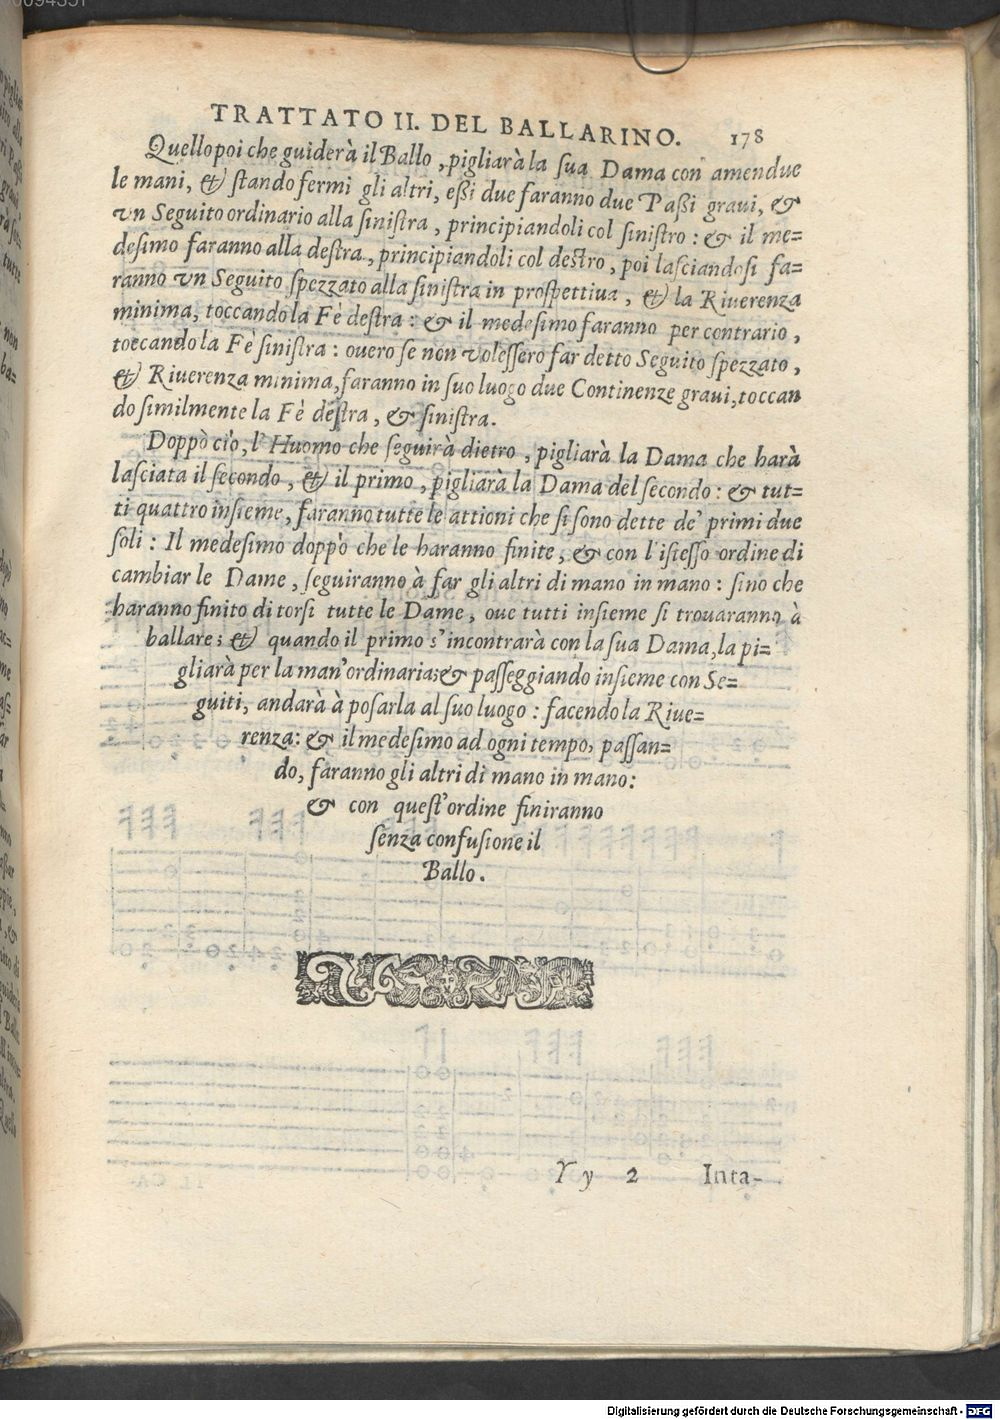 TRATTATO II. DEL BALLARINO. 178
Quello poi che guiderà il Ballo, pigliarà la sua Dama con amendue
le mani, & stando fermi gli altri, eßi due faranno due Paßi graui, &
vn Seguito ordinario alla sinistra, principiandoli col sinistro: & il me=
desimo faranno alla destra, principiandoli col destro, poi lasciandosi fa=
ranno vn Seguito spezzato alla sinistra in prospettiua, & la Riuerenza
minima, toccando la Fè destra: & il medesimo faranno per contrario,
toccando la Fè sinistra: ouero se non volessero far detto Seguito spezzato,
& Riuerenza minima, faranno in suo luogo due Continenze graui, toccan
do similmente la Fè destra, & sinistra.
Doppò ciò, l'Huomo che seguirà dietro, pigliarà la Dama che harà
lasciata il secondo, & il primo, pigliarà la Dama del secondo: & tut=
ti quattro insieme, faranno tutte le attioni che si sono dette de' primi due
soli: Il medesimo doppò che le haranno finite, & con l'istesso ordine di
cambiar le Dame, seguiranno à far gli altri di mano in mano: sino che
haranno finito di torsi tutte le Dame, oue tutti insieme si trouaranno à
ballare; & quando il primo s'incontrarà con la sua Dama, la pi=
gliarà per la man' ordinaria; & passeggiando insieme con Se=
guiti, andarà à posarla al suo luogo: facendo la Riue=
renza: & il medesimo ad ogni tempo, passan=
do, faranno gli altri di mano in mano:
& con quest'ordine finiranno
senza confusione il
Ballo.
Yy 2 Inta-
Digitalisierung gefördert durch die Deutsche Forschungsgemeinschaft - DFG